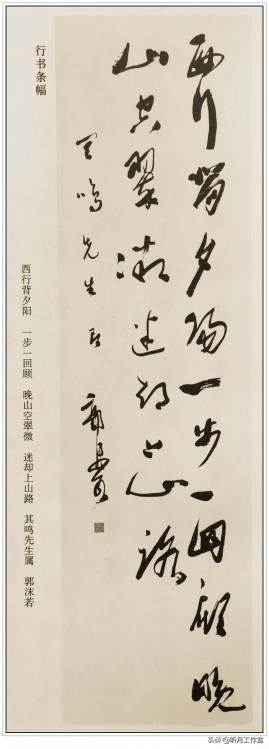 行书条幅
西行背夕阳 一步一回顾 晚山空翠微 迷却上山路 其鸣先生属 郭沫若
西行背夕陽一步一回顧晚
山空翠微迷却上山路
其鳴先生属
郭沫若
头条@昕月工作室